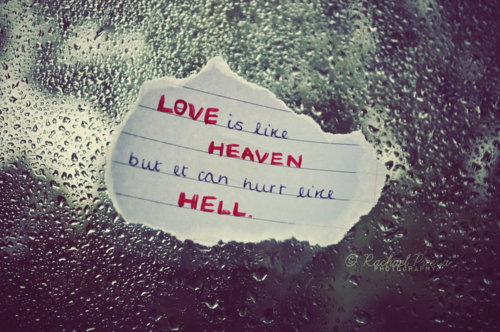 LOVE is like
HEAVEN
but it can hurt like
HELL.
© Rachael
PHOTOGRAPHY